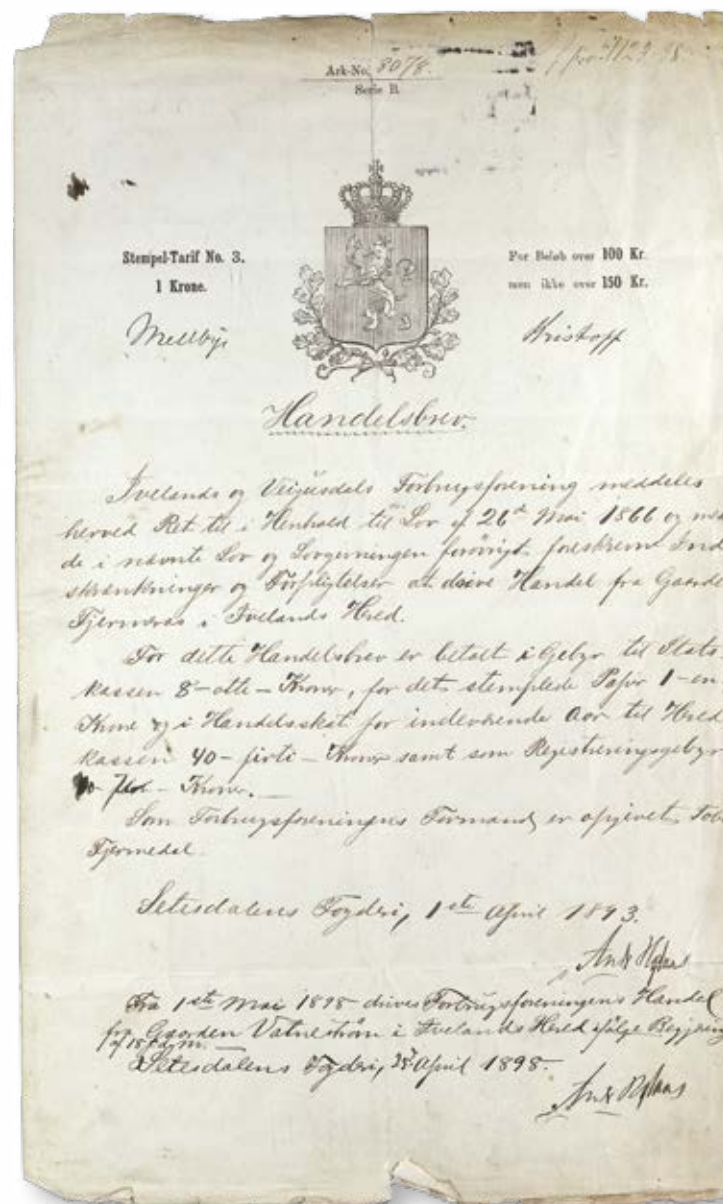 Ark-No. 8078.
Serie B.
Stempel-Tarif No. 3.
1 Krone.
For Beløb over 100 Kr.
men ikke over 150 Kr.
Mellbye
Kristoff
Handelsbrev.
Ivelands og Veigusdals Forbrugsforening meddeles
herved Ret til i Henhold til Lov af 26de Mai 1866 og med
de i nævnte Lov og Lovgivningen forøvrigt foreskrevne Ind
skrænkninger og Forpligtelser at drive Handel fra Gaarde
Fjermeros i Ivelands Hered.
For dette Handelsbrev er betalt i Gebyr til Stats
kassen 8 - otte - Kroner, for det stemplede Papir 1 - en
Krone og i Handelsskat for indeværende Aar til Hered
kassen 40 - firti - Kroner samt som Registreringsgebyr
Kroner. -
Som Forbrugsforeningens Formand er opgivet Tob
Fjermedal.
Setesdalens Fogderi, 1ste April 1893.
Fra 1ste Mai 1898 drives Forbrugsforeningens Handel
fra Gaarden Vatnestrøm i Ivelands Hered ifølge Begjæring
af 18 d. m. -
Setesdalens Fogderi, April 1898.